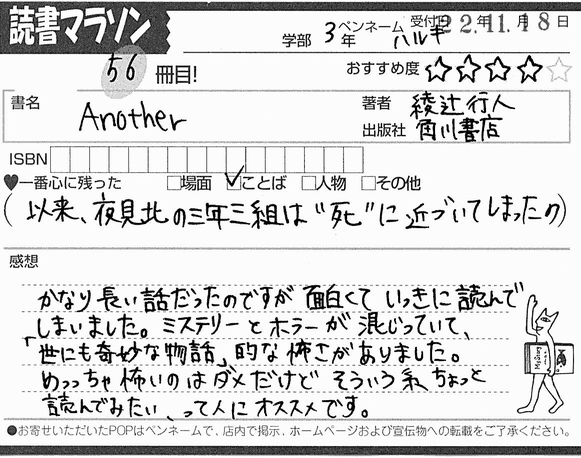 読書マラソン
学部 3年 ペンネーム ハルキ 受付日 22年11月18日
56冊目!
おすすめ度 ☆☆☆☆☆
書名 Another
著者 綾辻行人
出版社 角川書店
ISBN
♥一番心に残った □場面 ☑ことば □人物 □その他
(以来、夜見北の三年三組は“死”に近づいてしまったの)
感想
かなり長い話だったのですが面白くていっきに読んで
しまいました。ミステリーとホラーが混じっていて、
「世にも奇妙な物語」的な怖さがありました。
めっちゃ怖いのはダメだけどそういう系、ちょっと
読んでみたい、って人にオススメです。
●お寄せいただいたPOPはペンネームで、店内で掲示、ホームページおよび宣伝物への転載をご了承ください。